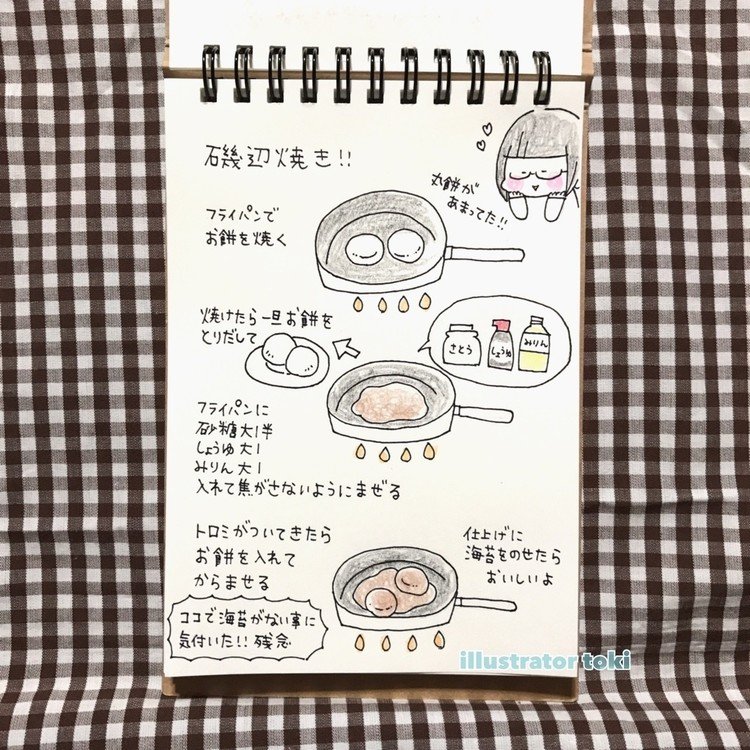 磯辺焼き!!
丸餅が
あまってた!!
フライパンで
お餅を焼く
焼けたら一旦お餅を
とりだして
さとう
しょうゆ
みりん
フライパンに
砂糖大1半
しょうゆ大1
みりん大1
入れて焦がさないようにまぜる
トロミがついてきたら
お餅を入れて
からませる
仕上げに
海苔をのせたら
おいしいよ
ココで海苔がない事に
気付いた!!残念
illustrator toki